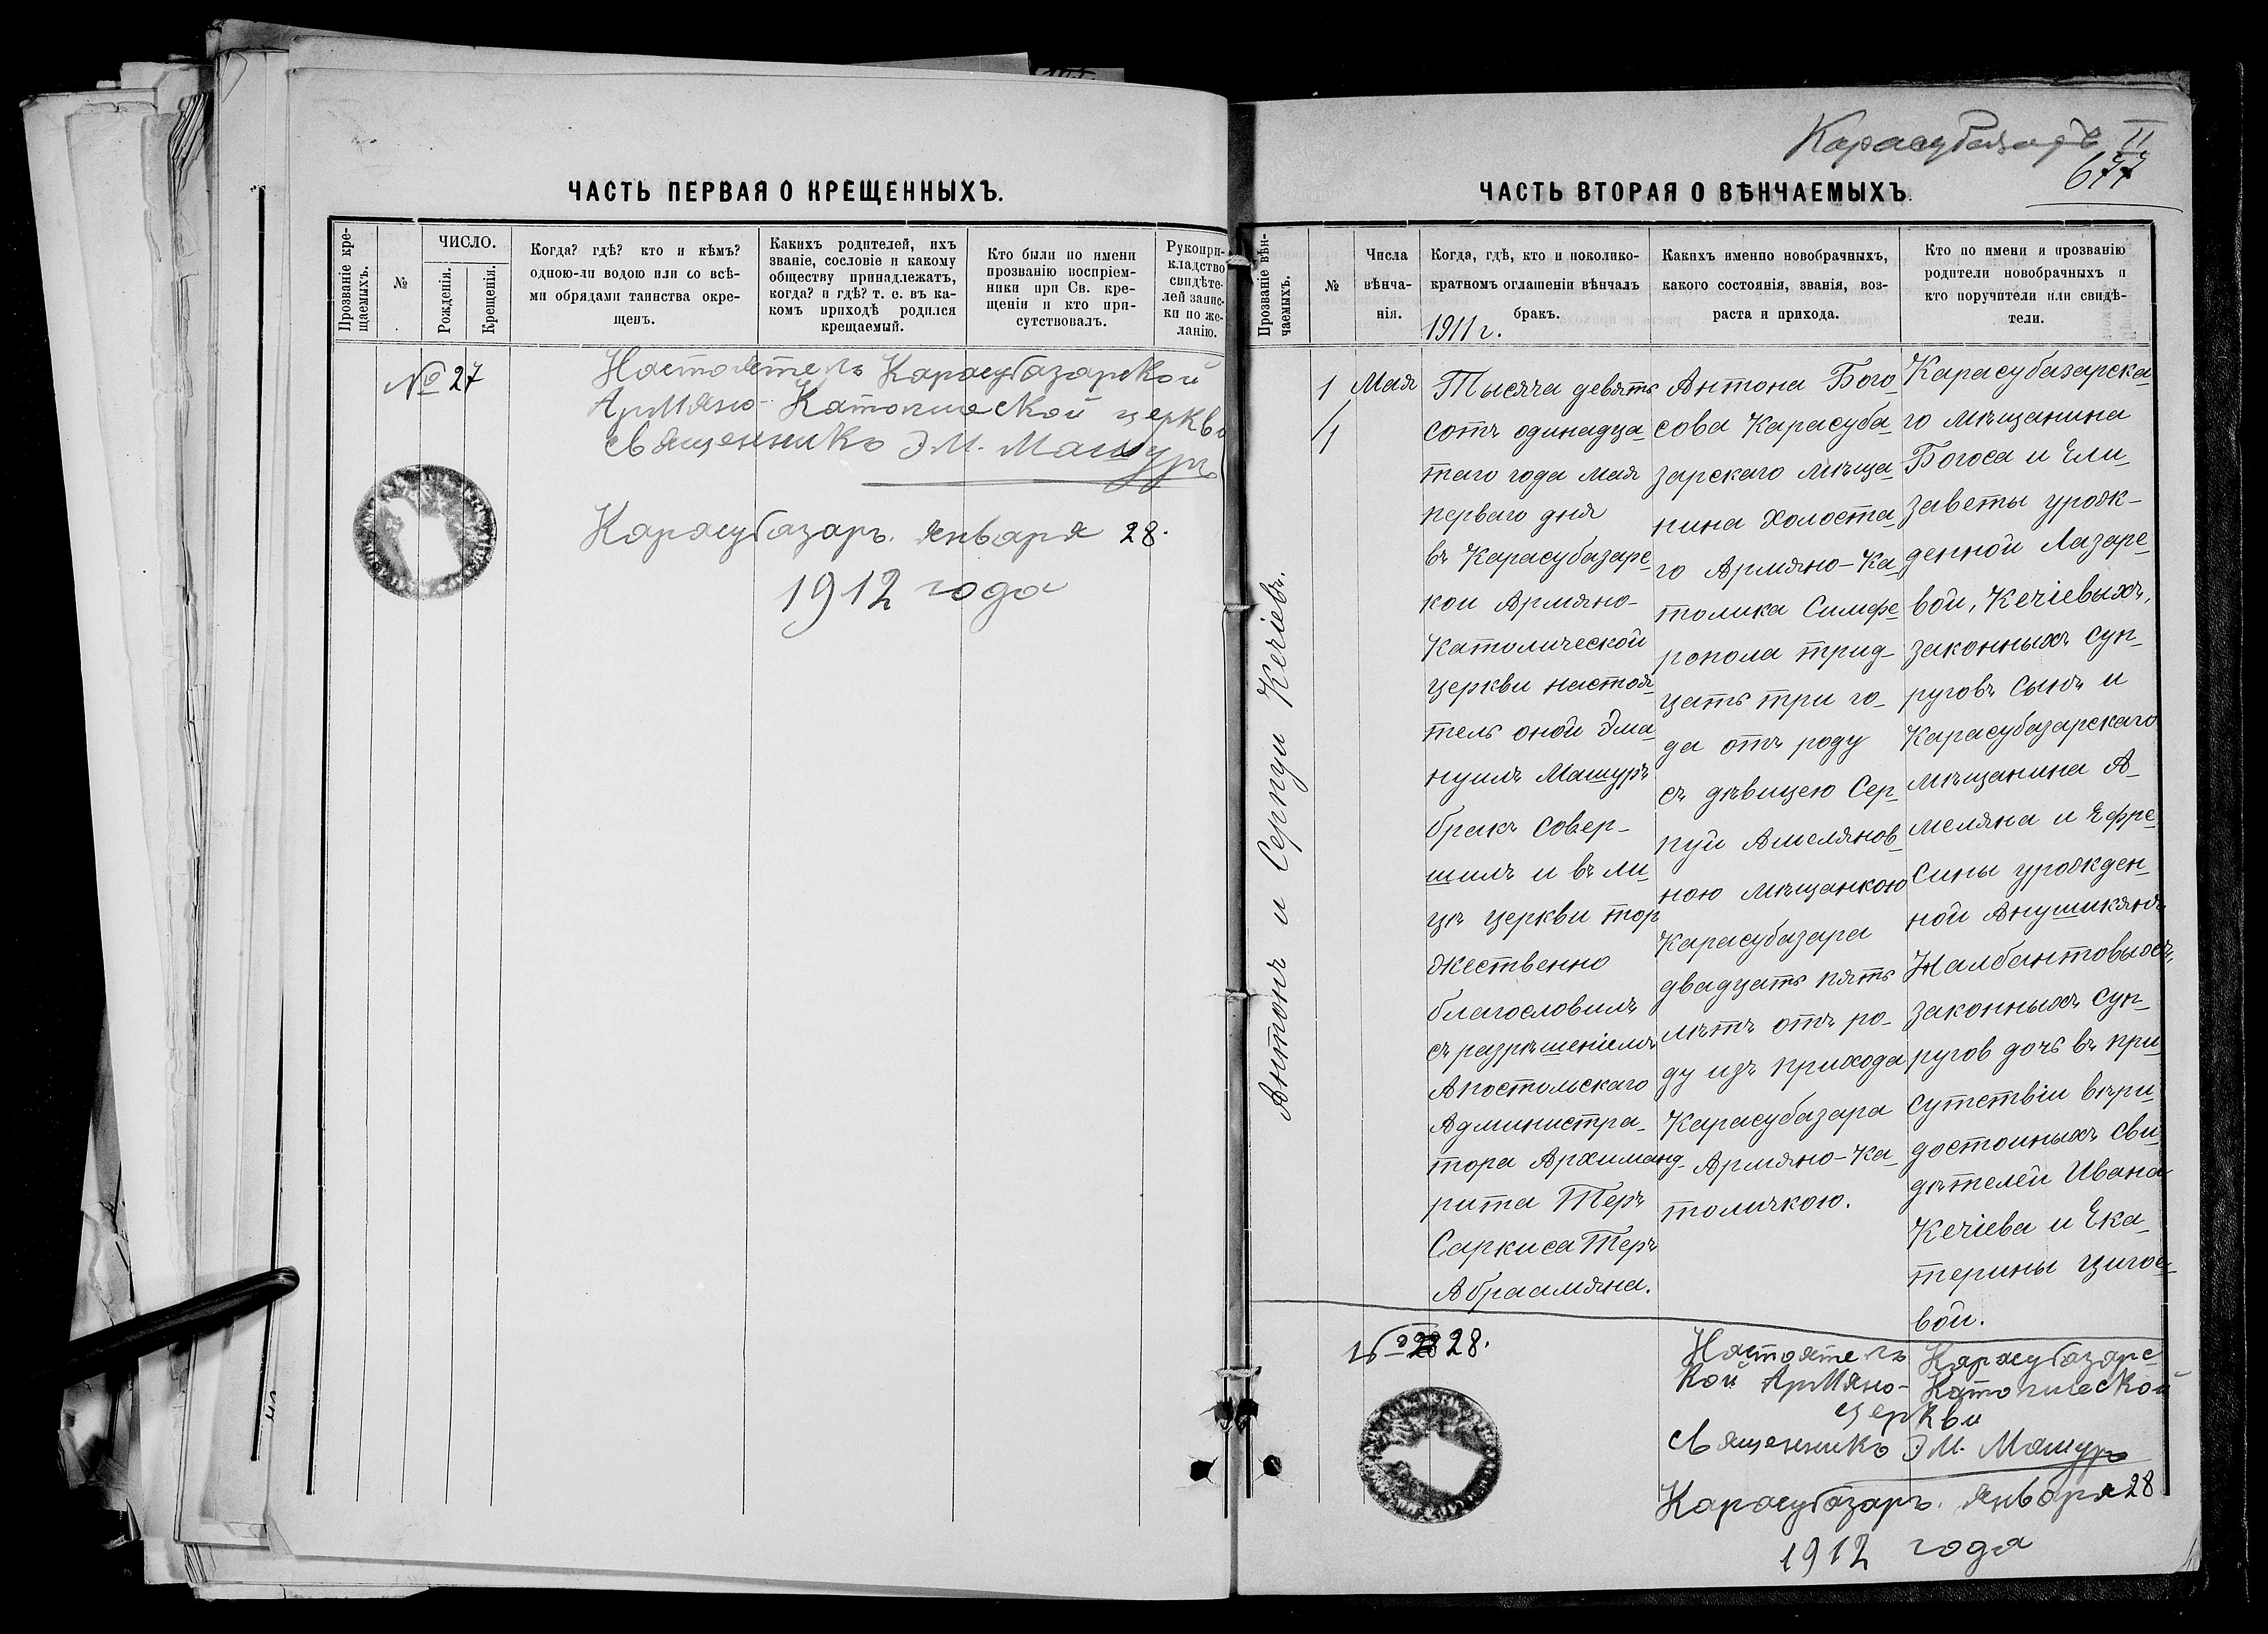 ЧАСТЬ ПЕРВАЯ О КРЕЩЕННЫХЪ.
Прозваніе кре-
щаемыхъ.
№
ЧИСЛО.
Рожденія.
Крещенія.
Когда? гдѣ? кто и кѣмъ?
одною-ли водою или со всѣ-
ми обрядами таинства окре-
щенъ.
Какихъ родителей, ихъ
званіе, сословіе и какому
обществу принадлежатъ,
когда? и гдѣ? т. е. въ ка-
комъ приходѣ родился
крещаемый.
Кто были по имени
прозванію воспріем-
ники при Св. кре-
щеніи и кто при-
сутствовалъ.
Рукопри-
кладство
свидѣте-
лей запис-
ки по же-
ланію.
№ 27
Настоятель Карасубазарской
Армяно-Католической церкви
священникъ Эм. Машуръ
Карасубазаръ. Января 28.
1912 года
Карасубазаръ II
677
ЧАСТЬ ВТОРАЯ О ВѢНЧАЕМЫХЪ.
Прозваніе вѣн-
чаемыхъ.
№
Числа
вѣнча-
нія.
Когда, гдѣ, кто и поколико-
кратномъ оглашеніи вѣнчалъ
бракъ.
1911 г.
Какихъ именно новобрачныхъ,
какого состоянія, званія, воз-
раста и прихода.
Кто по имени и прозванію
родители новобрачныхъ и
кто поручители или свидѣ-
тели.
Антонъ и Серпуи Кечіевъ.
1
/1
Мая
Тысяча девять
сотъ одинадца-
таго года мая
перваго дня
въ Карасубазарс-
кой Армяно-
Католической
церкви настоя-
тель оной Эма-
нуилъ Машуръ
бракъ совер-
шилъ и въ ли-
цѣ церкви тор
жественно
благословилъ
съ разрѣшеніемъ
Апостольскаго
Администра-
тора Архиманд-
рита Теръ
Саркиса Теръ
Абраамяна.
Антона Бого
сова Карасуба-
зарскаго мѣща-
нина холоста-
го Армяно-Ка-
толика Симфе-
ропола трид-
цать три го-
да отъ роду
съ дѣвицею Сер-
пуи Амелянов-
ною мѣщанкою
Карасубазара
двадцать пять
лѣтъ отъ ро-
ду изъ прихода
Карасубазара
Армяно-Ка-
толичкою.
Карасубазарска-
го мѣщанина
Богоса и Ели-
заветы урож-
денной Лазаре-
вой, Кечіевыхъ,
законныхъ суп-
руговъ сынъ и
Карасубазарскаго
мѣщанина А-
меляна и Ефре-
сины урожден-
ной Анушикянъ
Налбантовыхъ,
законныхъ суп-
ругов дочь въ при-
сутствіи вѣри-
достоиныхъ сви-
дѣтелей Ивана
Кечіева и Ека-
терины Цигое-
вой.
№ 28.
Настоятель Карасубазарс-
кой Армяно-Католической
церкви
священникъ Эм. Машуръ
Карасубазаръ. Января 28
1912 года